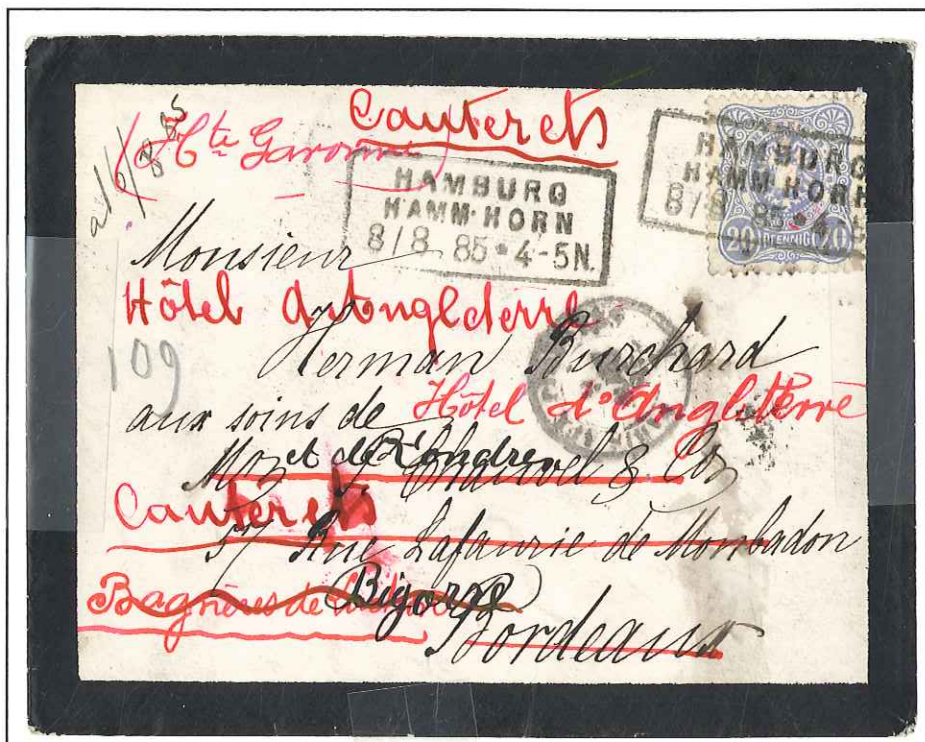 Cauterets
(Hte Garonne)
HAMBURG
HAMM·HORN
8/8 85 * 4-5N.
HAMBURG
HAMM·HORN
8/8 85 *
20 PFENNIG 20
Monsieur
Hôtel d'Angleterre
Herman Burchard
109
aux soins de Hôtel d'Angleterre
et de Londres
Chauvel & Co
Cauterets
57 Rue Lafaurie de Monbadon
Bagnères de Bigorre
Bordeaux